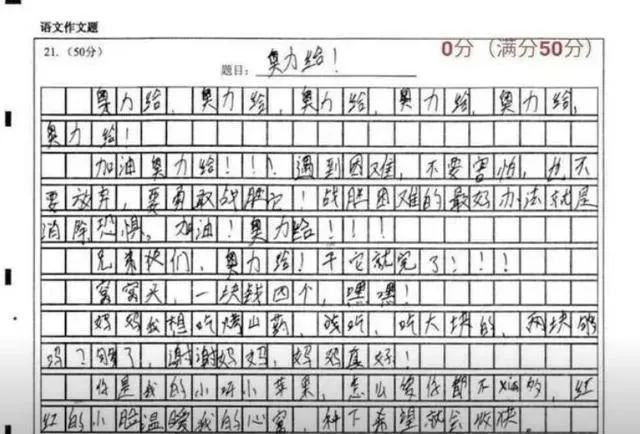 语文作文题
21.（50分） 0分（满分50分）
题目：奥力给！
奥力给，奥力给，奥力给，奥力给，奥力给，
奥力给！
加油奥力给！！！遇到困难，不要害怕，也不
要放弃，要勇敢战胜它！战胜困难的最好办法就是
消除恐惧。加油！奥力给！！！！
兄弟们，奥力给！干它就完了！！！！
窝窝头，一块钱四个，嘿嘿！
妈妈我想吃烤山药，吃吃，吃大块的，两块够
吗？够了，谢谢妈妈，妈妈真好！
你是我的小呀小苹果，怎么爱你都不xián的，红
红的小脸温暖我的心窝，种下希望就会收获。